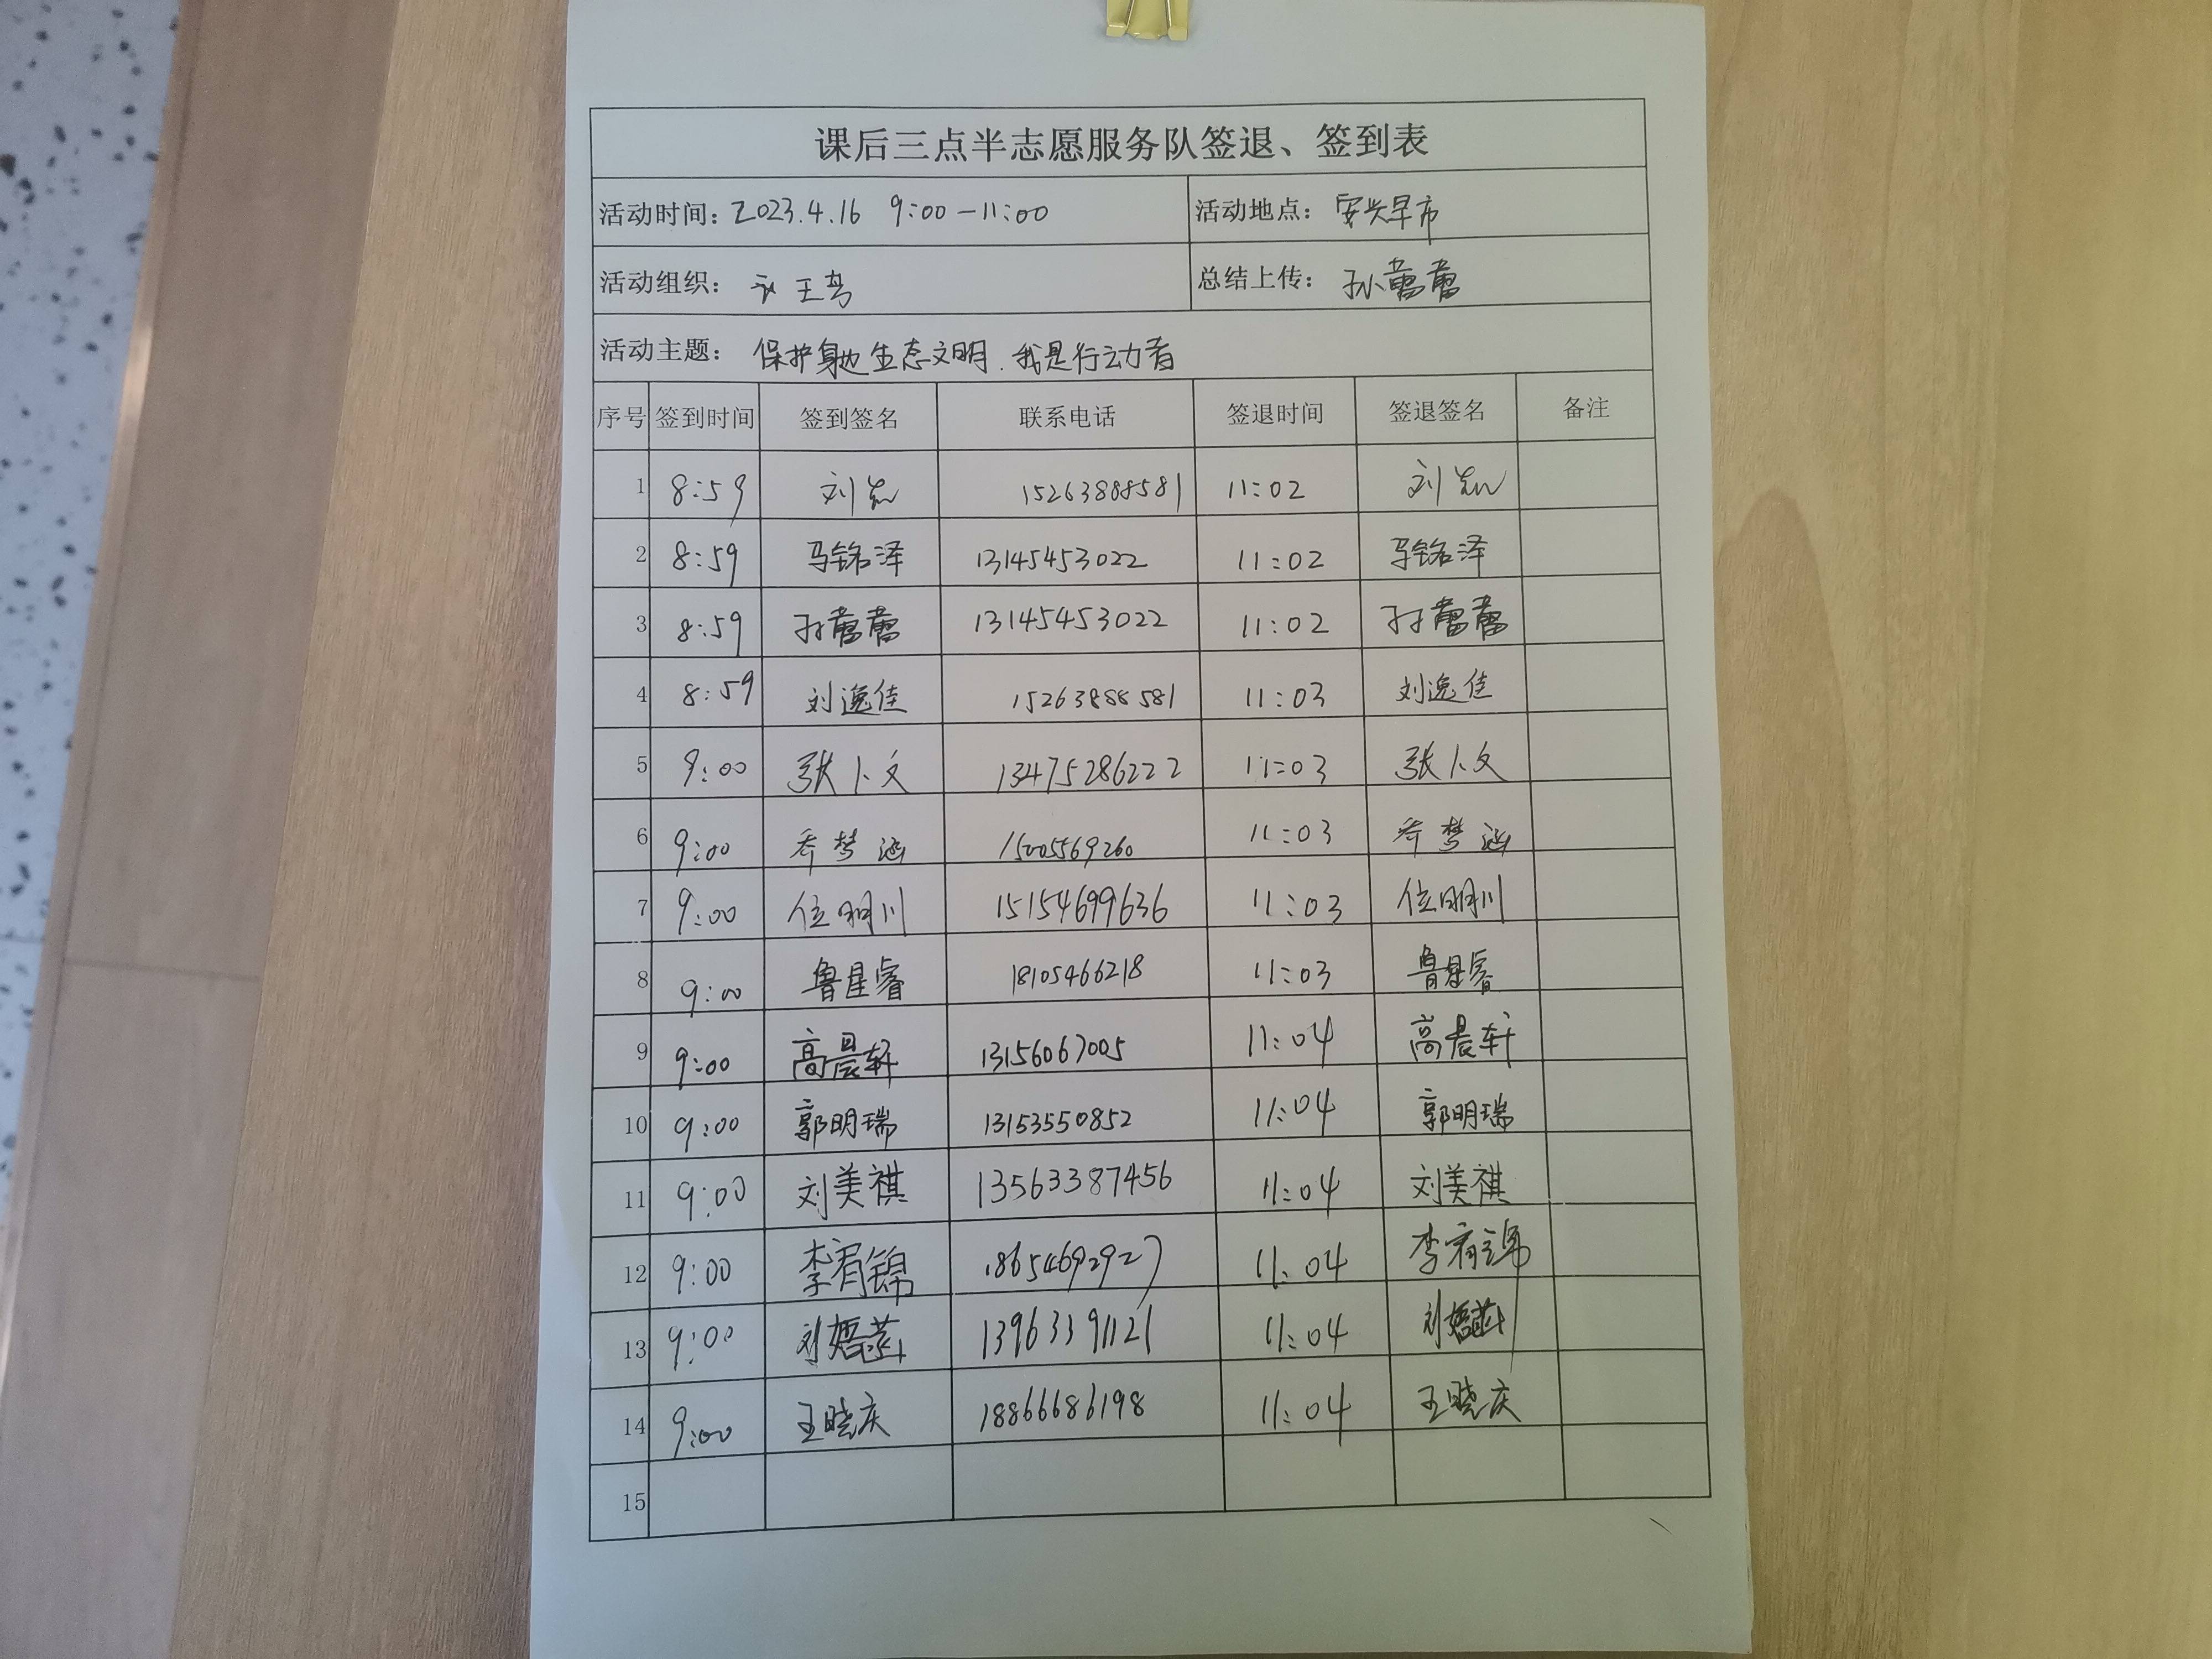 课后三点半志愿服务队签退、签到表
活动时间：2023.4.16 9:00-11:00 活动地点：安兴早市
活动组织： 总结上传：孙蕾蕾
活动主题：保护身边生态文明.我是行动者
序号 签到时间 签到签名 联系电话 签退时间 签退签名 备注
1 8:59 刘 15263888581 11:02 刘
2 8:59 马铭泽 13145453022 11:02 马铭泽
3 8:59 孙蕾蕾 13145453022 11:02 孙蕾蕾
4 8:59 刘逸佳 15263888581 11:03 刘逸佳
5 9:00 张卜文 13475286222 11:03 张卜文
6 9:00 乔梦涵 15005569260 11:03 乔梦涵
7 9:00 位明川 15154699636 11:03 位明川
8 9:00 鲁星睿 18105466218 11:03 鲁星睿
9 9:00 高晨轩 13156067005 11:04 高晨轩
10 9:00 郭明瑞 13153550852 11:04 郭明瑞
11 9:00 刘美祺 13563387456 11:04 刘美祺
12 9:00 李宥锦 18654692927 11:04 李宥锦
13 9:00 刘 13963391121 11:04 刘
14 9:00 王晓庆 18866686198 11:04 王晓庆
15